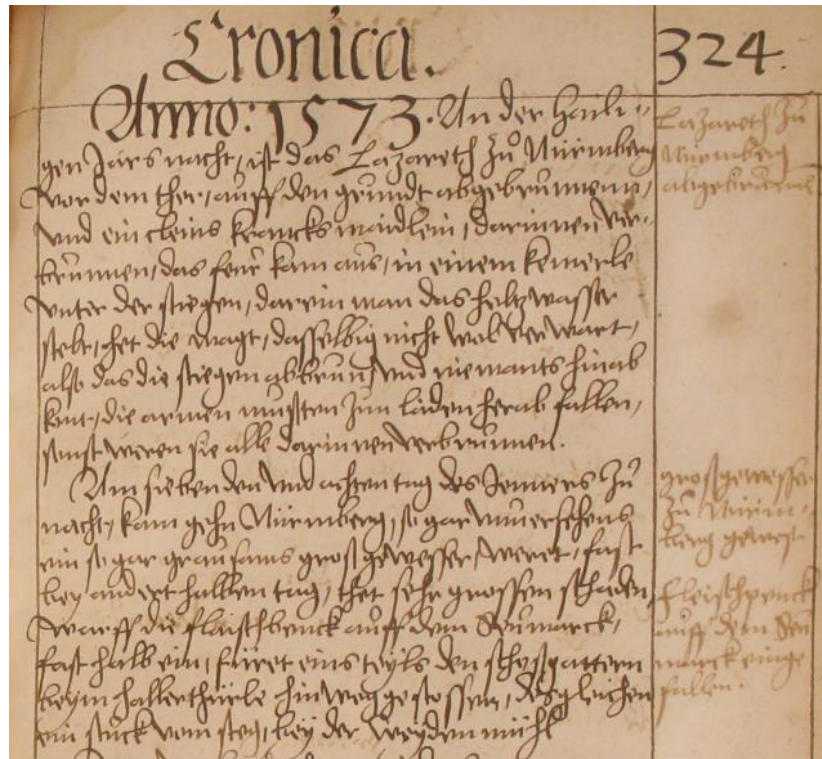 Cronica.
324.
Anno: 1573. An der haili-
gen Jars nacht, ist das Lazareth zů Nürmberg
vor dem ther, auff den grundt abgebrunnenn,
und ein cleins kranck maidlein, darinnen ver-
brunnen, das feur kam aus, in einem kemerle
unter der stiegen, darein man das holtz wasser
stelt, het die magt, dasselbig nicht wol verwart,
also das die stiegen abbrun, und niemants hinab
kunt, die armen musten zun läden herab fallen,
sunst weren sie alle darinnen verbrunnen.
Am siebenden und achten tag des Jenners zů
nacht, kam gehn Nürmberg, so gar unversehens
ein so gar grausams gross gewesser, weret, fast
bey andert halben tag, thet sehr grossen schaden,
warff die flaischbenck auff dem Seumarck,
fast halb ein, füret eins teyls den schossgattern
beym hallerthürle hinweg gestossen, desgleichen
ein stuck vom steg, bey der Weyden mühl
Lazareth zů
Nürmberg
abgebrunnen
gross gewesser
zů Nürm-
berg gewest
fleischpenck
auff dem Seu
marck einge
fallen.